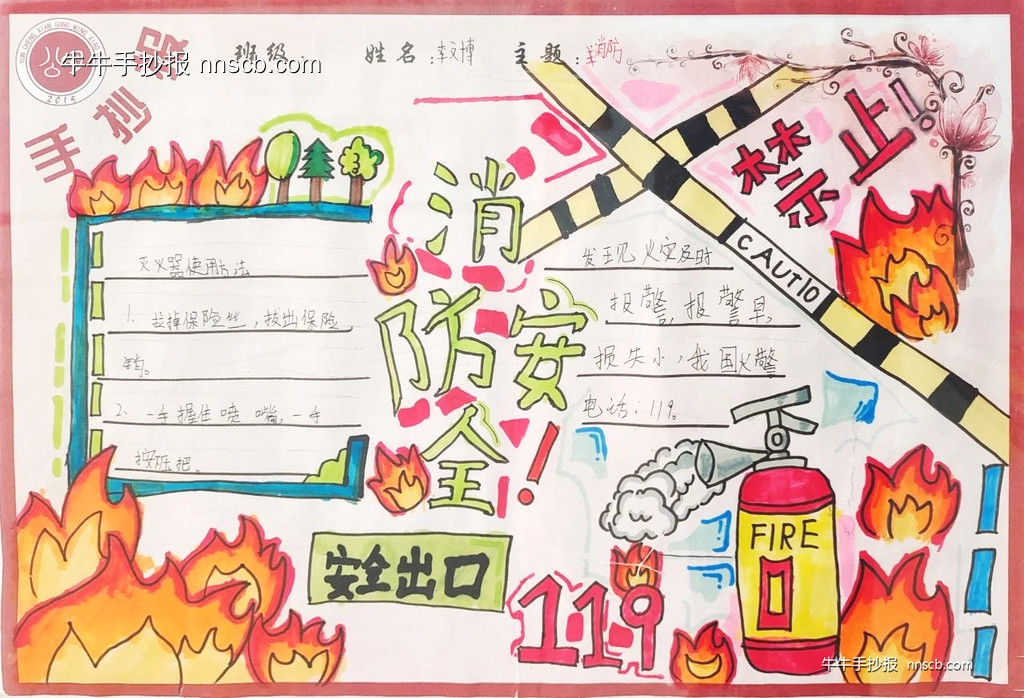 YUN CHENG XIAN GONG MING XIAO
2015
牛牛手抄报 nnscb.com
手抄报
班级: 姓名:李文博 主题:消防
禁止!
CAUTIO
消防安全!
灭火器使用方法
1. 拉掉保险丝,拔出保险
销。
2. 一手握住喷嘴,一手
按压把。
发王见火灾及时
报警,报警早,
损失小,我国火警
电话:119。
安全出口
119
FIRE
牛牛手抄报 nnscb.com